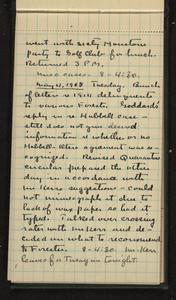 went with sixty Houstons
party to Golf Club for lunch.
Returned 3 P.M.
Misc cases. 8 - 4:30.
May 11, 1915 Tuesday. Bunch
of letters re 1914 delinquents
to various Forests. Goddard's
reply in re Hubbell case -
still does not give desired
information if whether or no
Hubbell-Allen agreement was re-
cognized. Revised Quarantine
circular prepared the other
day in accordance with
Mr Kerr's suggestions - could
not mimeograph it due to
lack of wax paper so had it
typed. Talked over crossing
rates with Mr Kerr and de-
cided on what to recommend
to Forester. 8 - 4:30 Mr Kerr
leaves for Tusayan tonight.